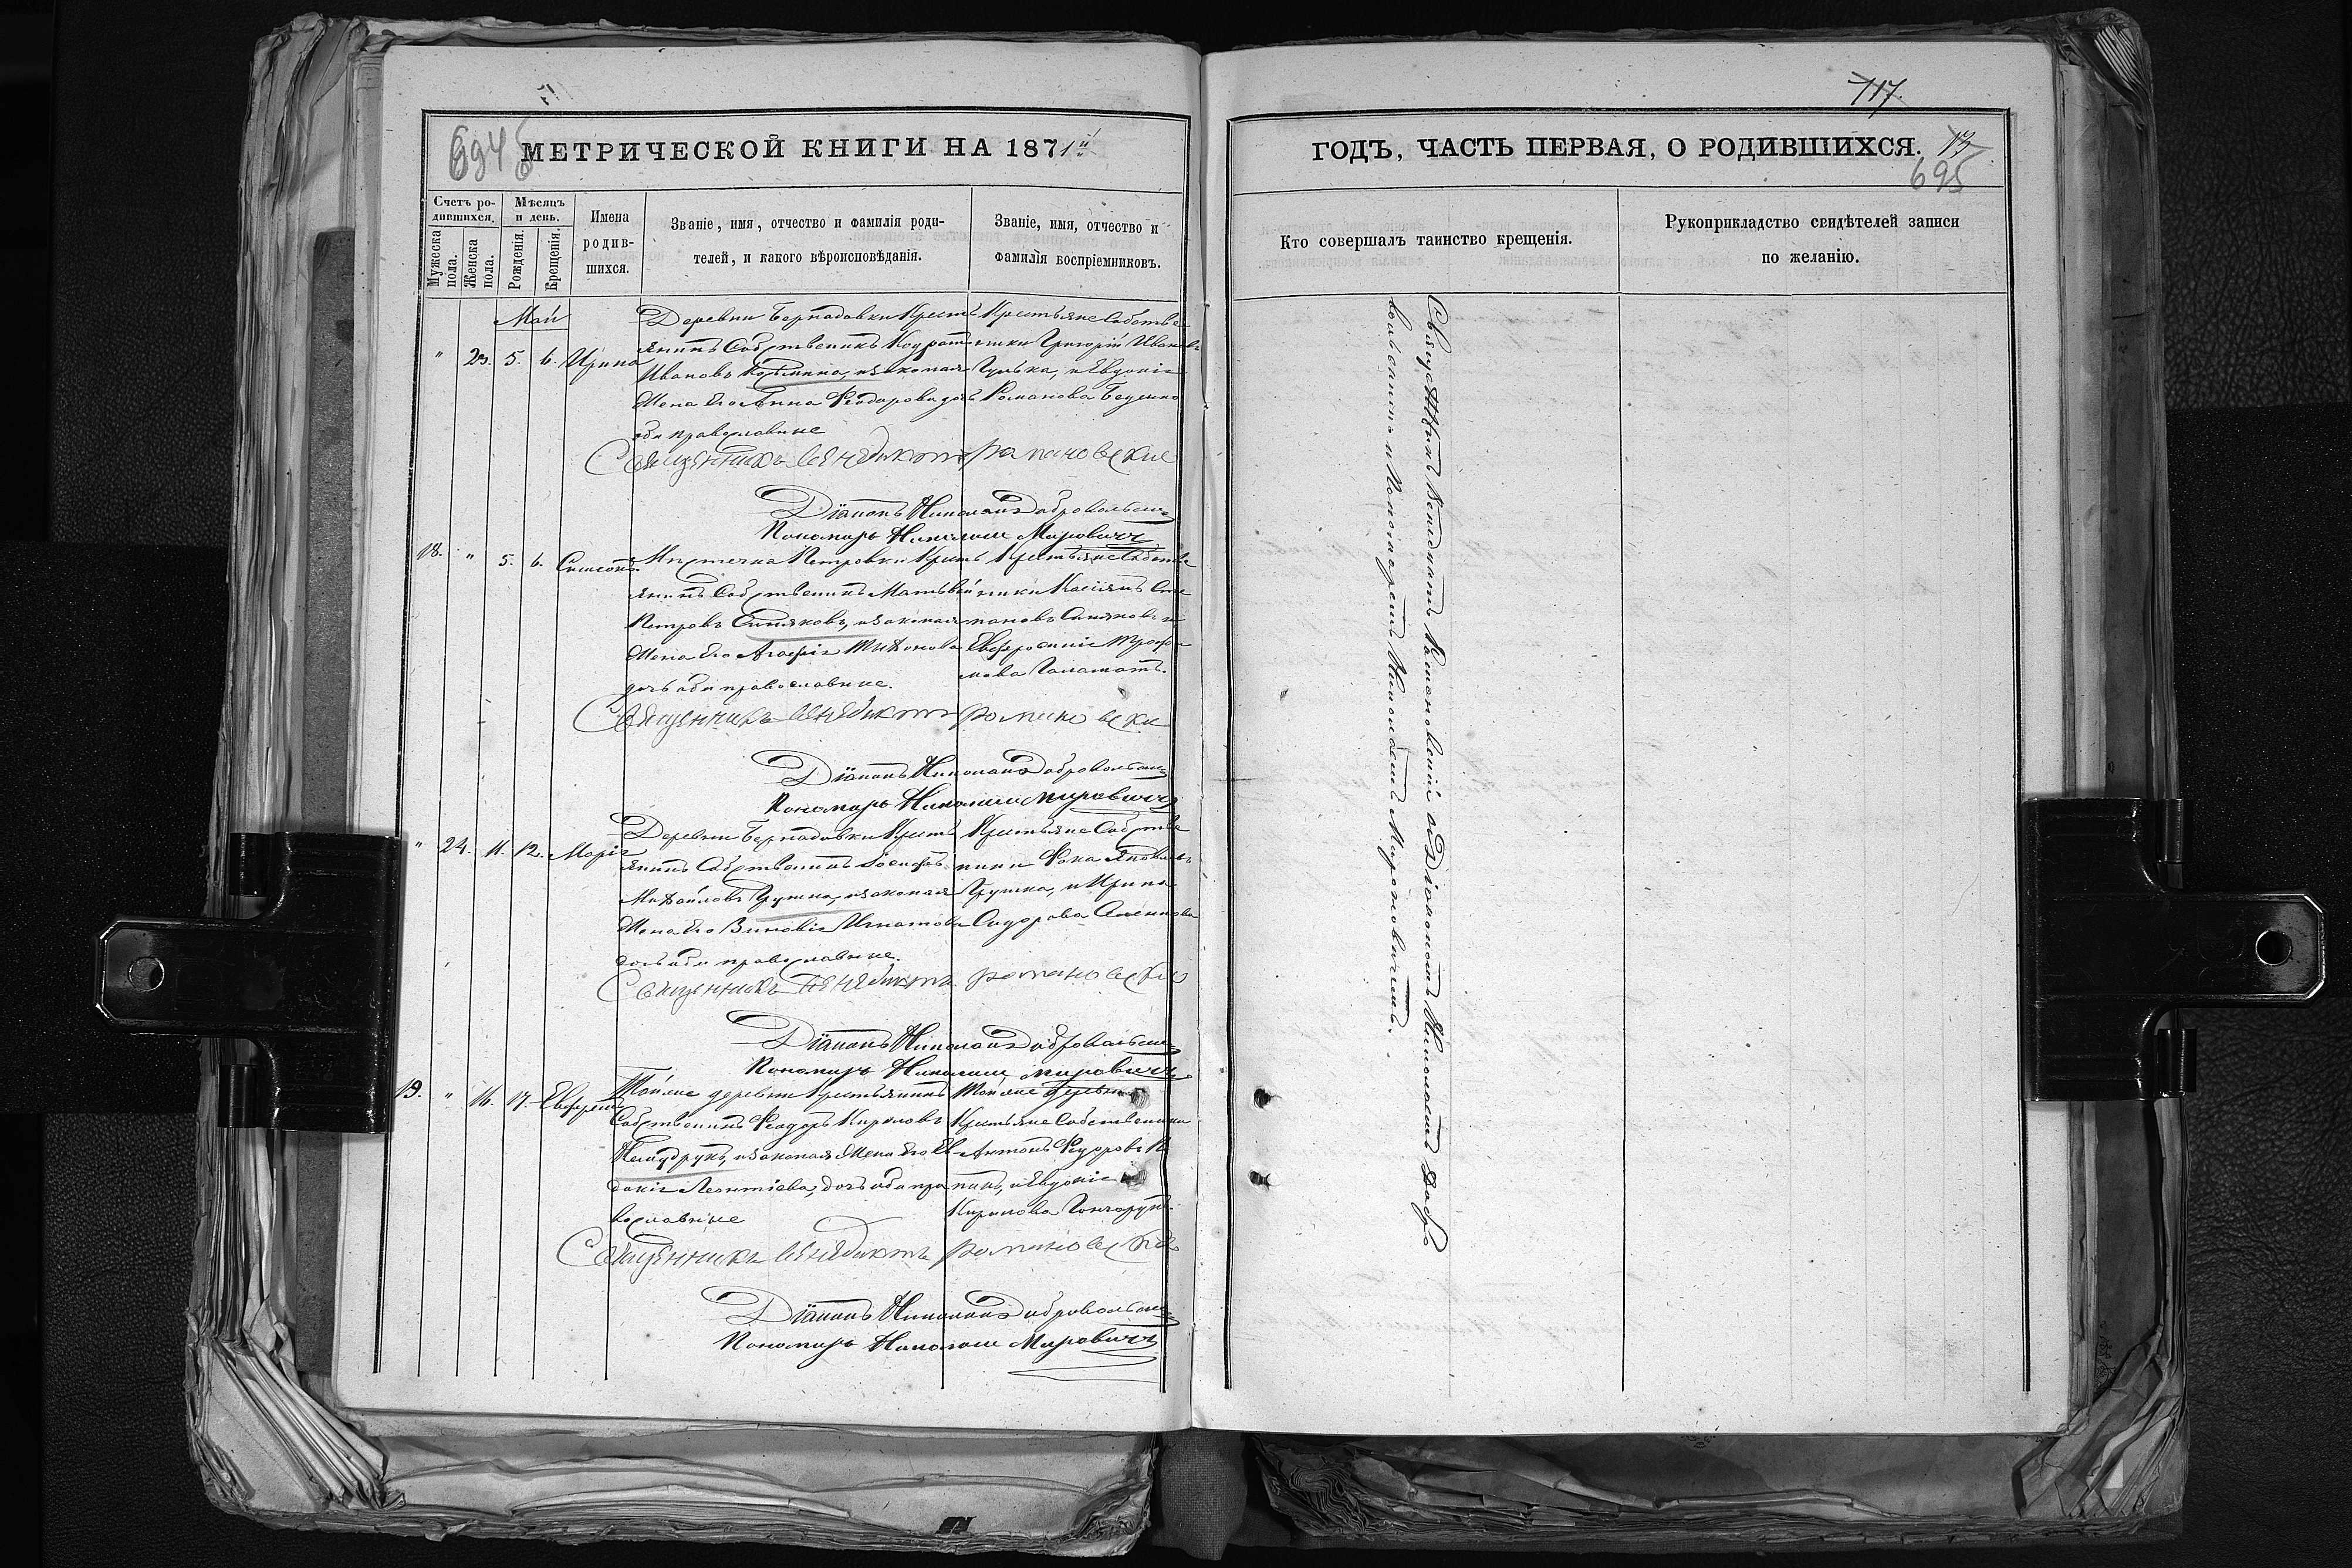 717.
6945
МЕТРИЧЕСКОЙ КНИГИ НА 1871й
Счетъ ро-
дившихся.
Мѣсяцъ
и день.
Мужеска
пола.
Женска
пола.
Рожденія.
Крещенія.
Имена
родив-
шихся.
Званіе, имя, отчество и фамилія роди-
телей, и какого вѣроисповѣданія.
Званіе, имя, отчество и
фамилія воспріемниковъ.
Май
" 23. 5. 6. Ирина
Деревни Бернадовки Кресть
янинъ Собственникъ Кодратъ
Ивановъ законная
Жена Его Анна Феодорова дочь
оба православные
Крестьяне Собстве
нники Григорій Ивановъ
и Евдокія
Романова
Священникъ Венедиктъ Романовскій
Діаконъ Николай Добровольскій
Пономарь Николай Мировичъ
18. " 5. 6. Симеонъ
Мѣстечка Петровки Кресть
янинъ Собственникъ Матвѣй
Петровъ Синяковъ, и законная
Жена Его Агафія Тихонова
дочь оба православные.
Крестьяне Собстве
нники Касіянъ Сте
пановъ Синяковъ и
Евфросинія Трофи
мова
Священникъ Венедиктъ Романовскій
Діаконъ Николай Добровольскій
Пономарь Николай Мировичъ
" 24. 11. 12. Марія
Деревни Бернадовки Кресть
янинъ Собственникъ Іосифъ
Михайловъ Грушка, и законная
Жена Его Зиновія Игнатова
дочь оба православные.
Крестьяне Собстве
нники Фока Яковлевъ
Грушка, и Ирина
Сидорова
Священникъ Венедиктъ Романовскій
Діаконъ Николай Добровольскій
Пономарь Николай Мировичъ
19. " 16. 17.
Той же деревни Крестьянинъ
Собственникъ Феодоръ Кириловъ
и законная Жена Его Ев
докія Леонтіева, дочь оба пра
вославные
Той же деревни
Крестьяне Собственники
Антонъ Федоровъ
и Евдокія
Кирилова
Священникъ Венедиктъ Романовскій
Діаконъ Николай Добровольскій
Пономарь Николай Мировичъ
ГОДЪ, ЧАСТЬ ПЕРВАЯ, О РОДИВШИХСЯ.
13
695
Кто совершалъ таинство крещенія.
Рукоприкладство свидѣтелей записи
по желанію.
Священникъ Венедиктъ Романовскій съ Діакономъ Николаемъ Добро
вольскимъ и Пономаремъ Николаемъ Мировичемъ.